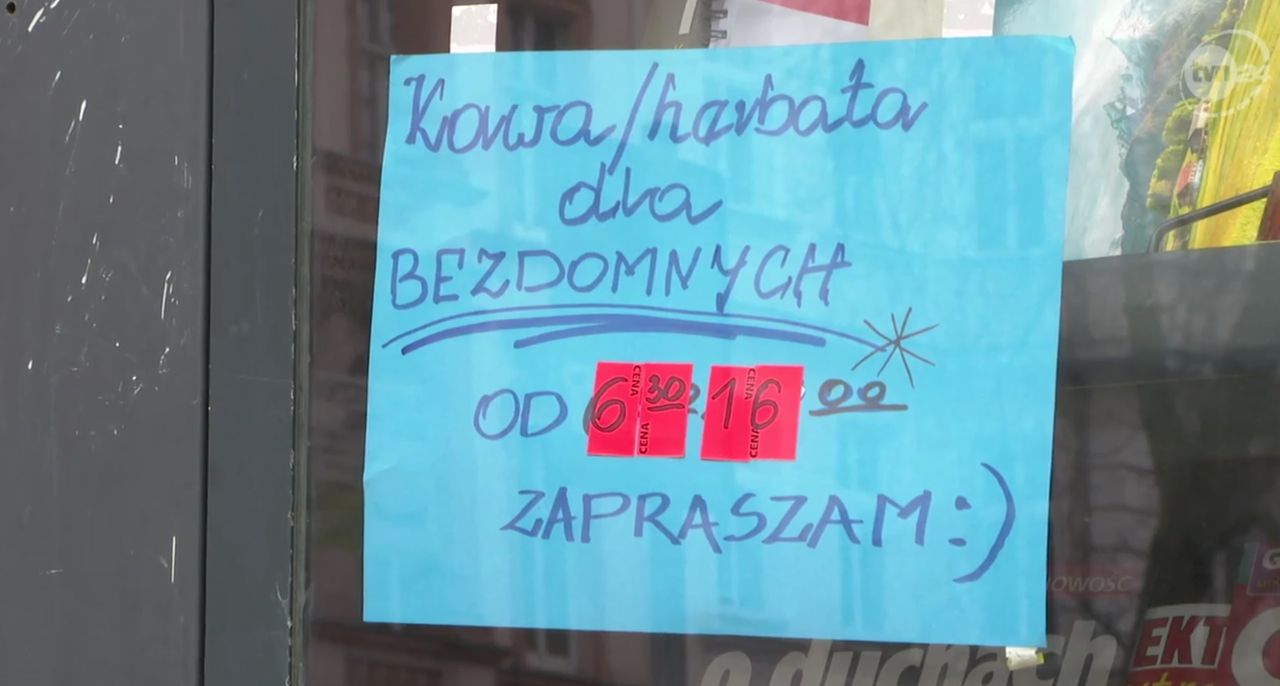 tvn24
Kawa/herbata
dla
BEZDOMNYCH
OD 6 30 16 00
CENA CENA CENA CENA
ZAPRASZAM :)
NOWOŚĆ
EKT
o duchach